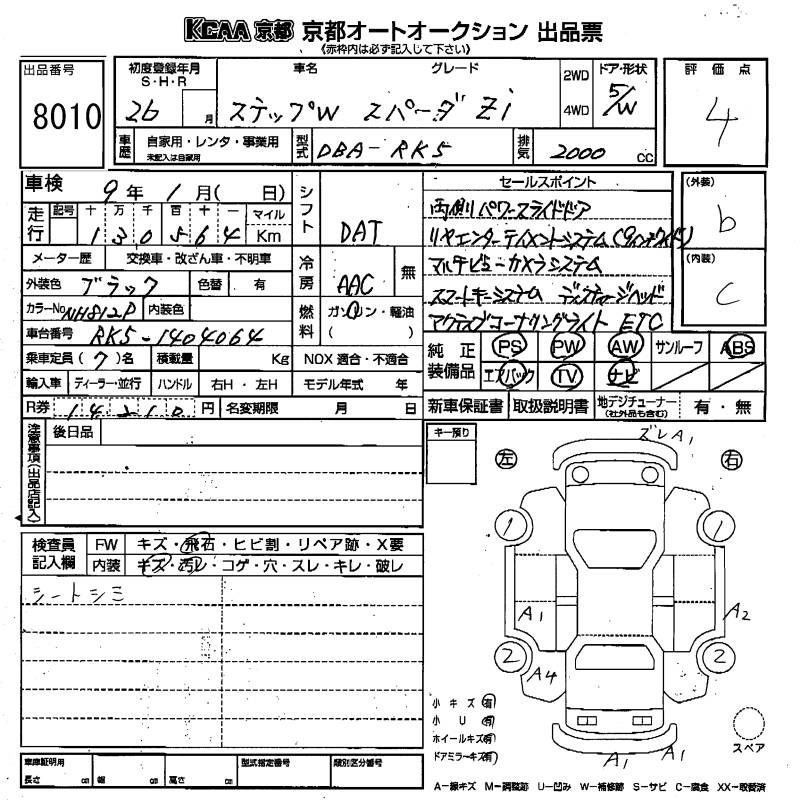 KCAA 京都 京都オートオークション 出品票
《赤枠内は必ず記入して下さい》
出品番号
8010
初度登録年月
S・H・R
26 月
車名 グレード
ステップW スパーダ Zi
2WD
4WD
ドア・形状
5/W
評価点
4
車歴
自家用・レンタ・事業用
未記入は自家用
型式
DBA-RK5
排気
2000 cc
車検 9年 1月( 日)
走行
記号 十 万 千 百 十 一 マイル
1 3 0 5 6 4 Km
メーター歴 交換車・改ざん車・不明車
外装色 ブラック 色替 有
カラーNo NH812P 内装色
車台番号 RK5-1404064
乗車定員 (7)名 積載量 Kg
輸入車 ディーラー・並行 ハンドル 右H・左H
R券 14210円 名変期限 月 日
シフト
DAT
冷房
AAC 無
燃料
ガソリン・軽油
( )
NOX 適合・不適合
モデル年式 年
セールスポイント
両側パワースライドドア
リヤエンターテイメントシステム(9インチワイド)
マルチビューカメラシステム
スマートキーシステム ディスチャージヘッド
アクティブコーナリングライト ETC
(外装)
b
(内装)
C
純正装備品
PS PW AW サンルーフ ABS
エアバック TV ナビ
新車保証書 取扱説明書 地デジチューナー (社外品も含む) 有・無
注意事項(出品店記入)
後日品
キー預り
検査員記入欄
FW キズ・飛石・ヒビ割・リペア跡・X要
内装 キズ・汚レ・コゲ・穴・スレ・キレ・破レ
シートシミ
ズレA1
左 右
1 1
A1 A2
2 A4 2
小キズ 有
小U 有
ホイールキズ 有
ドアミラーキズ 有
A1 A1
スペア
車庫証明用
長さ cm 幅 cm 高さ cm
型式指定番号
類別区分番号
A-線キズ M-調整跡 U-凹み W-補修跡 S-サビ C-腐食 XX-取替済